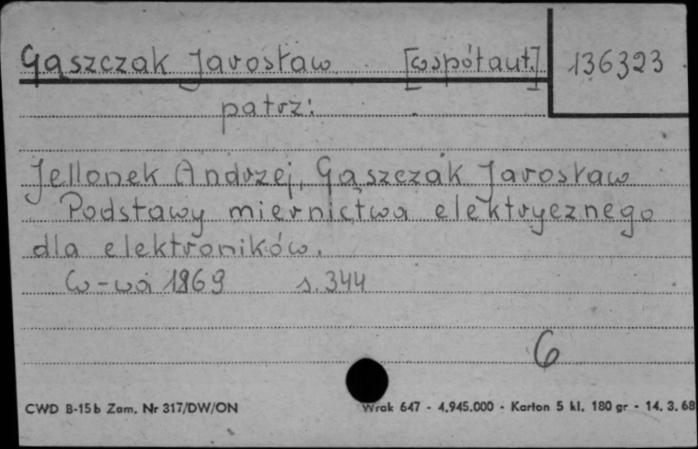 Gąszczak Jarosław [współaut.] 136323
patrz:
Jellonek Andrzej, Gąszczak Jarosław
Podstawy miernictwa elektrycznego
dla elektroników.
W-wa 1969 s. 344
6
CWD B-15b Zam. Nr 317/DW/ON Wrak 647 - 4.945.000 - Karton 5 kl. 180 gr - 14. 3. 68